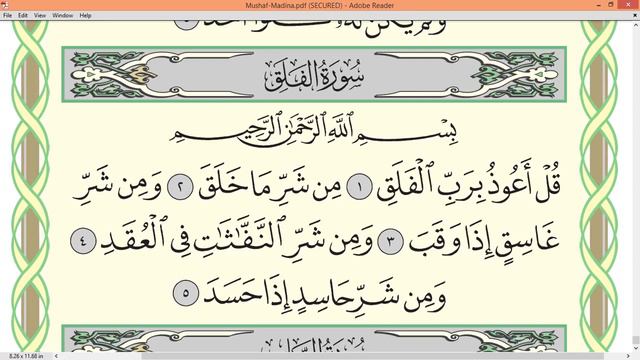 Mushaf-Madina.pdf (SECURED) - Adobe Reader
File Edit View Window Help
سُورَةُ الفَلَقِ
بِسْمِ ٱللَّهِ ٱلرَّحْمَٰنِ ٱلرَّحِيمِ
قُلْ أَعُوذُ بِرَبِّ ٱلْفَلَقِ ١ مِن شَرِّ مَا خَلَقَ ٢ وَمِن شَرِّ
غَاسِقٍ إِذَا وَقَبَ ٣ وَمِن شَرِّ ٱلنَّفَّٰثَٰتِ فِى ٱلْعُقَدِ ٤
وَمِن شَرِّ حَاسِدٍ إِذَا حَسَدَ ٥
8.26 x 11.68 in